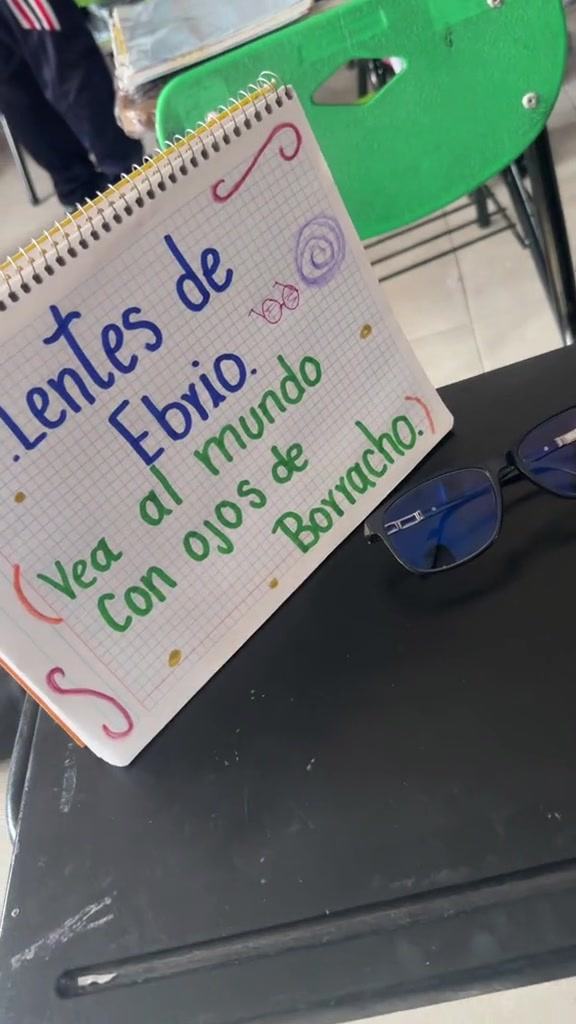 Lentes de
Ebrio.
(Vea al mundo
con ojos de
Borracho.)